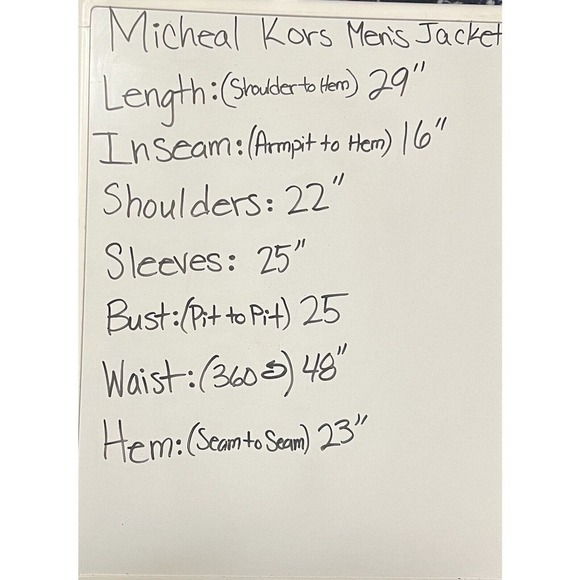 Micheal Kors Men's Jacket
Length:(Shoulder to Hem) 29"
Inseam:(Armpit to Hem) 16"
Shoulders: 22"
Sleeves: 25"
Bust:(Pit to Pit) 25
Waist:(360) 48"
Hem:(Seam to Seam) 23"